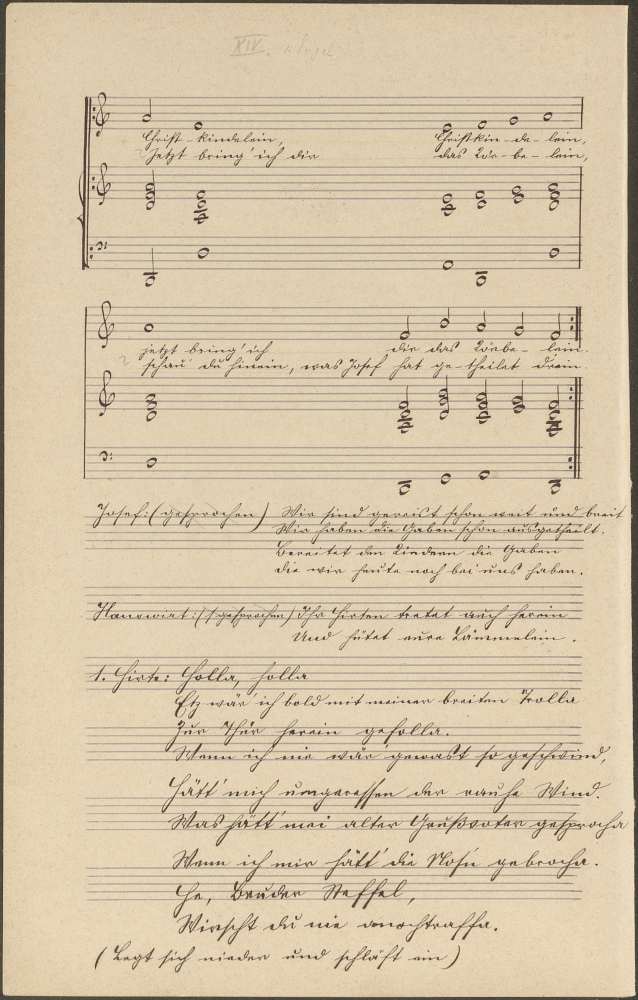 XIV. Engel
Christ-kindelein, Christkin-de-lein,
Jetzt bring' ich dir das Kör-be-lein,
jetzt bring' ich dir das Körbe-lein.
schau' du hinein, was Josef hat ge-theilet drein
Josef: (gesprochen) Wir sind gereist schon weit und breit
Wir haben die Gaben schon ausgetheilt.
Bereitet den Kindern die Gaben
die wir heute noch bei uns haben.
(gesprochen) Ihr Hirten tretet auch herein
Und hütet eure Lämmelein.
1. Hirte: Holla, holla
Etz wär' ich bald mit meiner breiten Trolla
Zur Thür herein gefolla.
Wenn ich nie wär' gewast so geschwind,
Hätt' mich umgeressen der rauhe Wind.
Was hätt' mei alter Grußvoter gesprocha
Wenn ich mir hätt' die Nosn gebrocha.
He, Bruder Steffel,
Wirscht du nie
(Legt sich nieder und schläft ein)